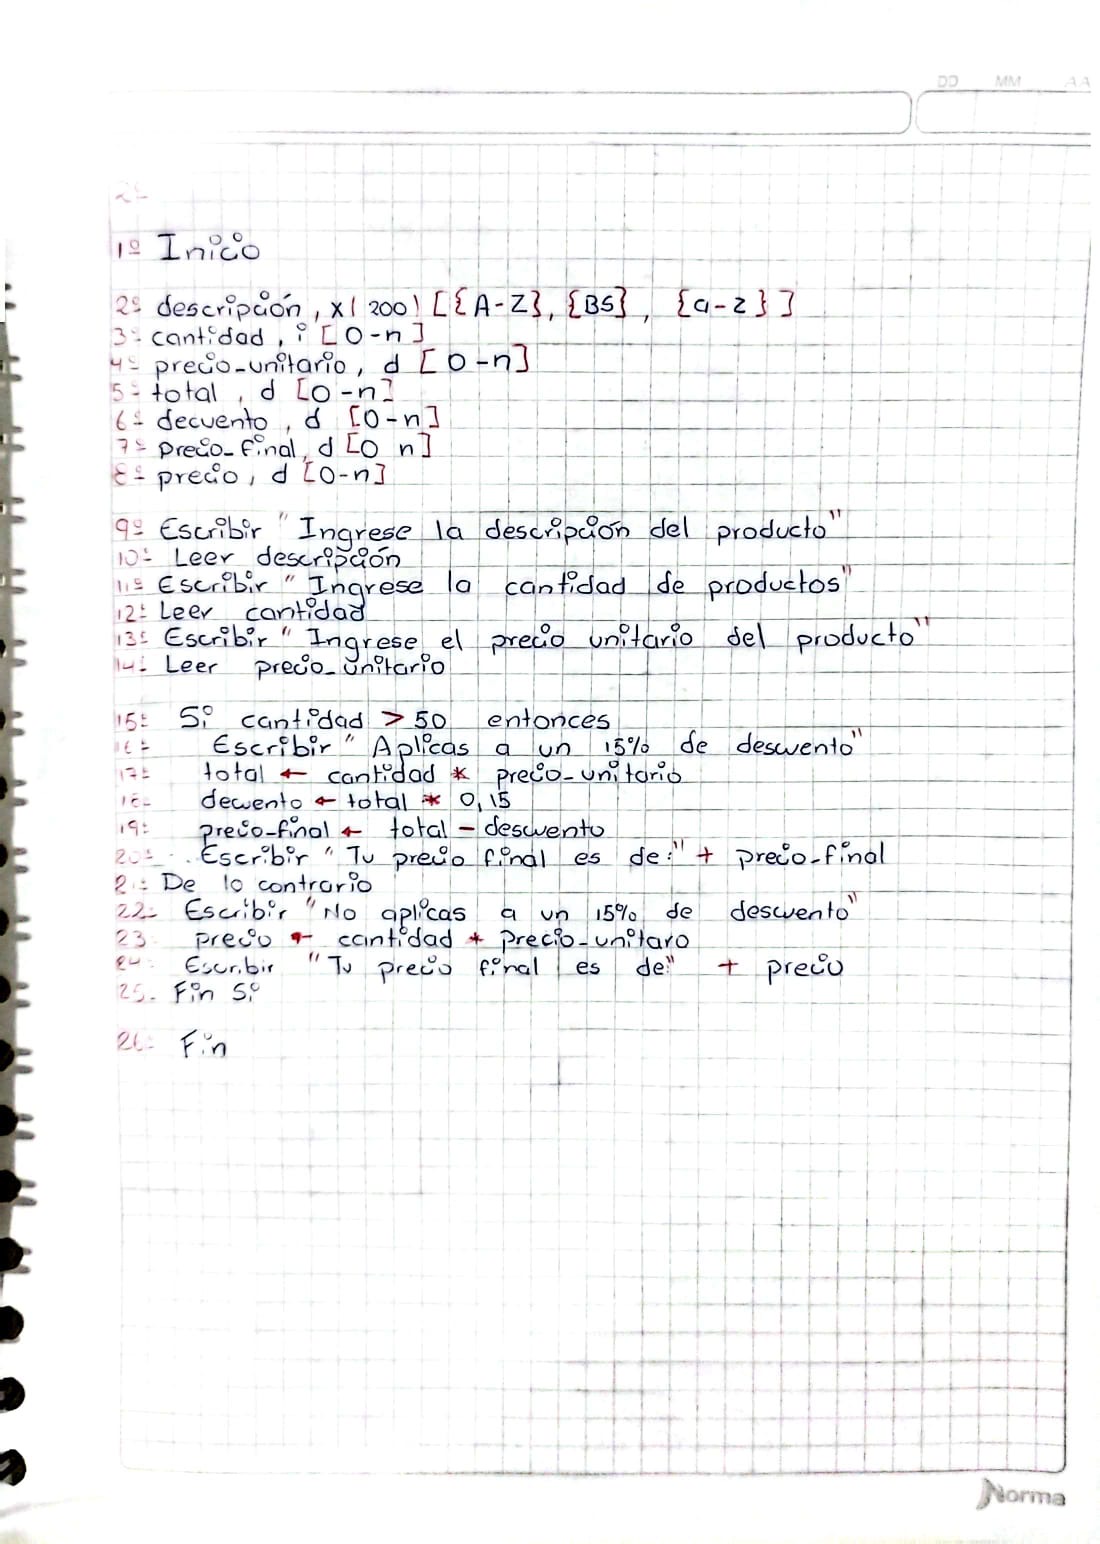 DD MM AA
2-
1º Inicio
2º descripción, x(200) [{A-Z}, {BS}, {a-z}]
3- cantidad, i [0-n]
4º precio-unitario, d [0-n]
5- total, d [0-n]
6º decuento, d [0-n]
7º precio-final, d [0 n]
8º precio, d [0-n]
9º Escribir "Ingrese la descripción del producto"
10- Leer descripción
11º Escribir "Ingrese la cantidad de productos"
12- Leer cantidad
13º Escribir "Ingrese el precio unitario del producto"
14- Leer precio-unitario
15- Si cantidad > 50 entonces
16- Escribir "Aplicas a un 15% de descuento"
17- total ← cantidad * precio-unitario
18- decuento ← total * 0,15
19- precio-final ← total - descuento
20- Escribir "Tu precio final es de:" + precio-final
2 - De lo contrario
22- Escribir "No aplicas a un 15% de descuento"
23. precio ← cantidad * precio-unitaro
24- Escribir "Tu precio final es de:" + precio
25. Fin Si
26- Fin
Norma